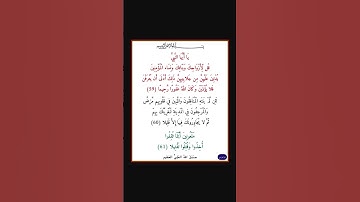 يَا أَيُّهَا النَّبِيُّ
قُل لِّأَزْوَاجِكَ وَبَنَاتِكَ وَنِسَاء الْمُؤْمِنِينَ
يُدْنِينَ عَلَيْهِنَّ مِن جَلَابِيبِهِنَّ ذَلِكَ أَدْنَى أَن يُعْرَفْنَ
فَلَا يُؤْذَيْنَ وَكَانَ اللَّهُ غَفُورًا رَّحِيمًا (59)
لَئِن لَّمْ يَنتَهِ الْمُنَافِقُونَ وَالَّذِينَ فِي قُلُوبِهِم مَّرَضٌ
وَالْمُرْجِفُونَ فِي الْمَدِينَةِ لَنُغْرِيَنَّكَ بِهِمْ
ثُمَّ لَا يُجَاوِرُونَكَ فِيهَا إِلَّا قَلِيلًا (60)
مَلْعُونِينَ أَيْنَمَا ثُقِفُوا
أُخِذُوا وَقُتِّلُوا تَقْتِيلًا (61)
صدق الله العلي العظيم